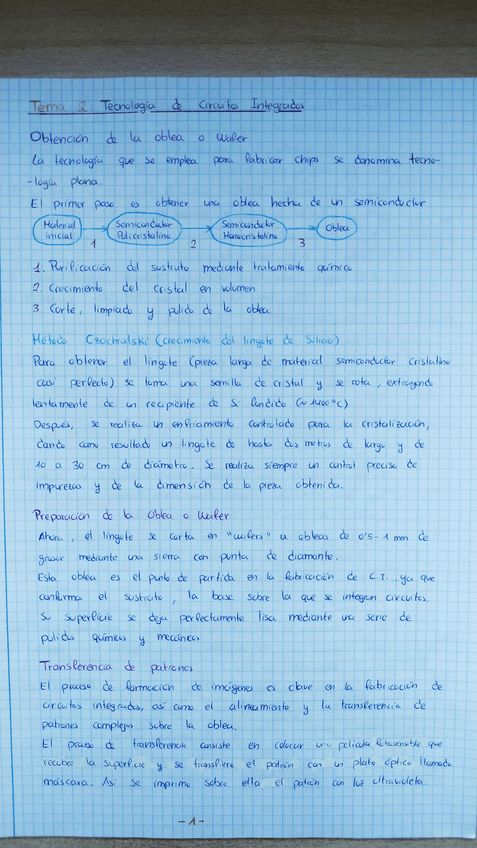 Tema 2 Tecnología de Circuitos Integrados
Obtención de la oblea o Wafer
La tecnología que se emplea para fabricar chips se denomina tecno-
-logía plana.
El primer paso es obtener una oblea hecha de un semiconductor
Material inicial → Semiconductor Policristalino → Semiconductor Monocristalino → Oblea
1 2 3
1. Purificación del sustrato mediante tratamiento químico
2. Crecimiento del cristal en volumen
3. Corte, limpiado y pulido de la oblea.
Método Czochralski (crecimiento del lingote de Silicio)
Para obtener el lingote (pieza larga de material semiconductor cristalino
casi perfecto) se toma una semilla de cristal y se rota, extrayendo
lentamente de un recipiente de Si fundido (≈1400°C)
Después, se realiza un enfriamiento controlado para la cristalización,
dando como resultado un lingote de hasta dos metros de largo y de
10 a 30 cm de diámetro. Se realiza siempre un control preciso de
impurezas y de la dimensión de la pieza obtenida.
Preparación de la Oblea o Wafer
Ahora, el lingote se corta en "wafers" u obleas de 0'5-1 mm de
grosor mediante una sierra con punta de diamante.
Esta oblea es el punto de partida en la fabricación de C.I., ya que
conforma el sustrato, la base sobre la que se integran circuitos.
Su superficie se deja perfectamente lisa mediante una serie de
pulidos químicos y mecánicos
Transferencia de patrones
El proceso de formación de imágenes es clave en la fabricación de
circuitos integrados, así como el alineamiento y la transferencia de
patrones complejos sobre la oblea.
El proceso de transferencia consiste en colocar una película fotosensible que
recubre la superficie y se transfiere el patrón con un plato óptico llamado
máscara. Así se imprime sobre ella el patrón con luz ultravioleta.
-1-